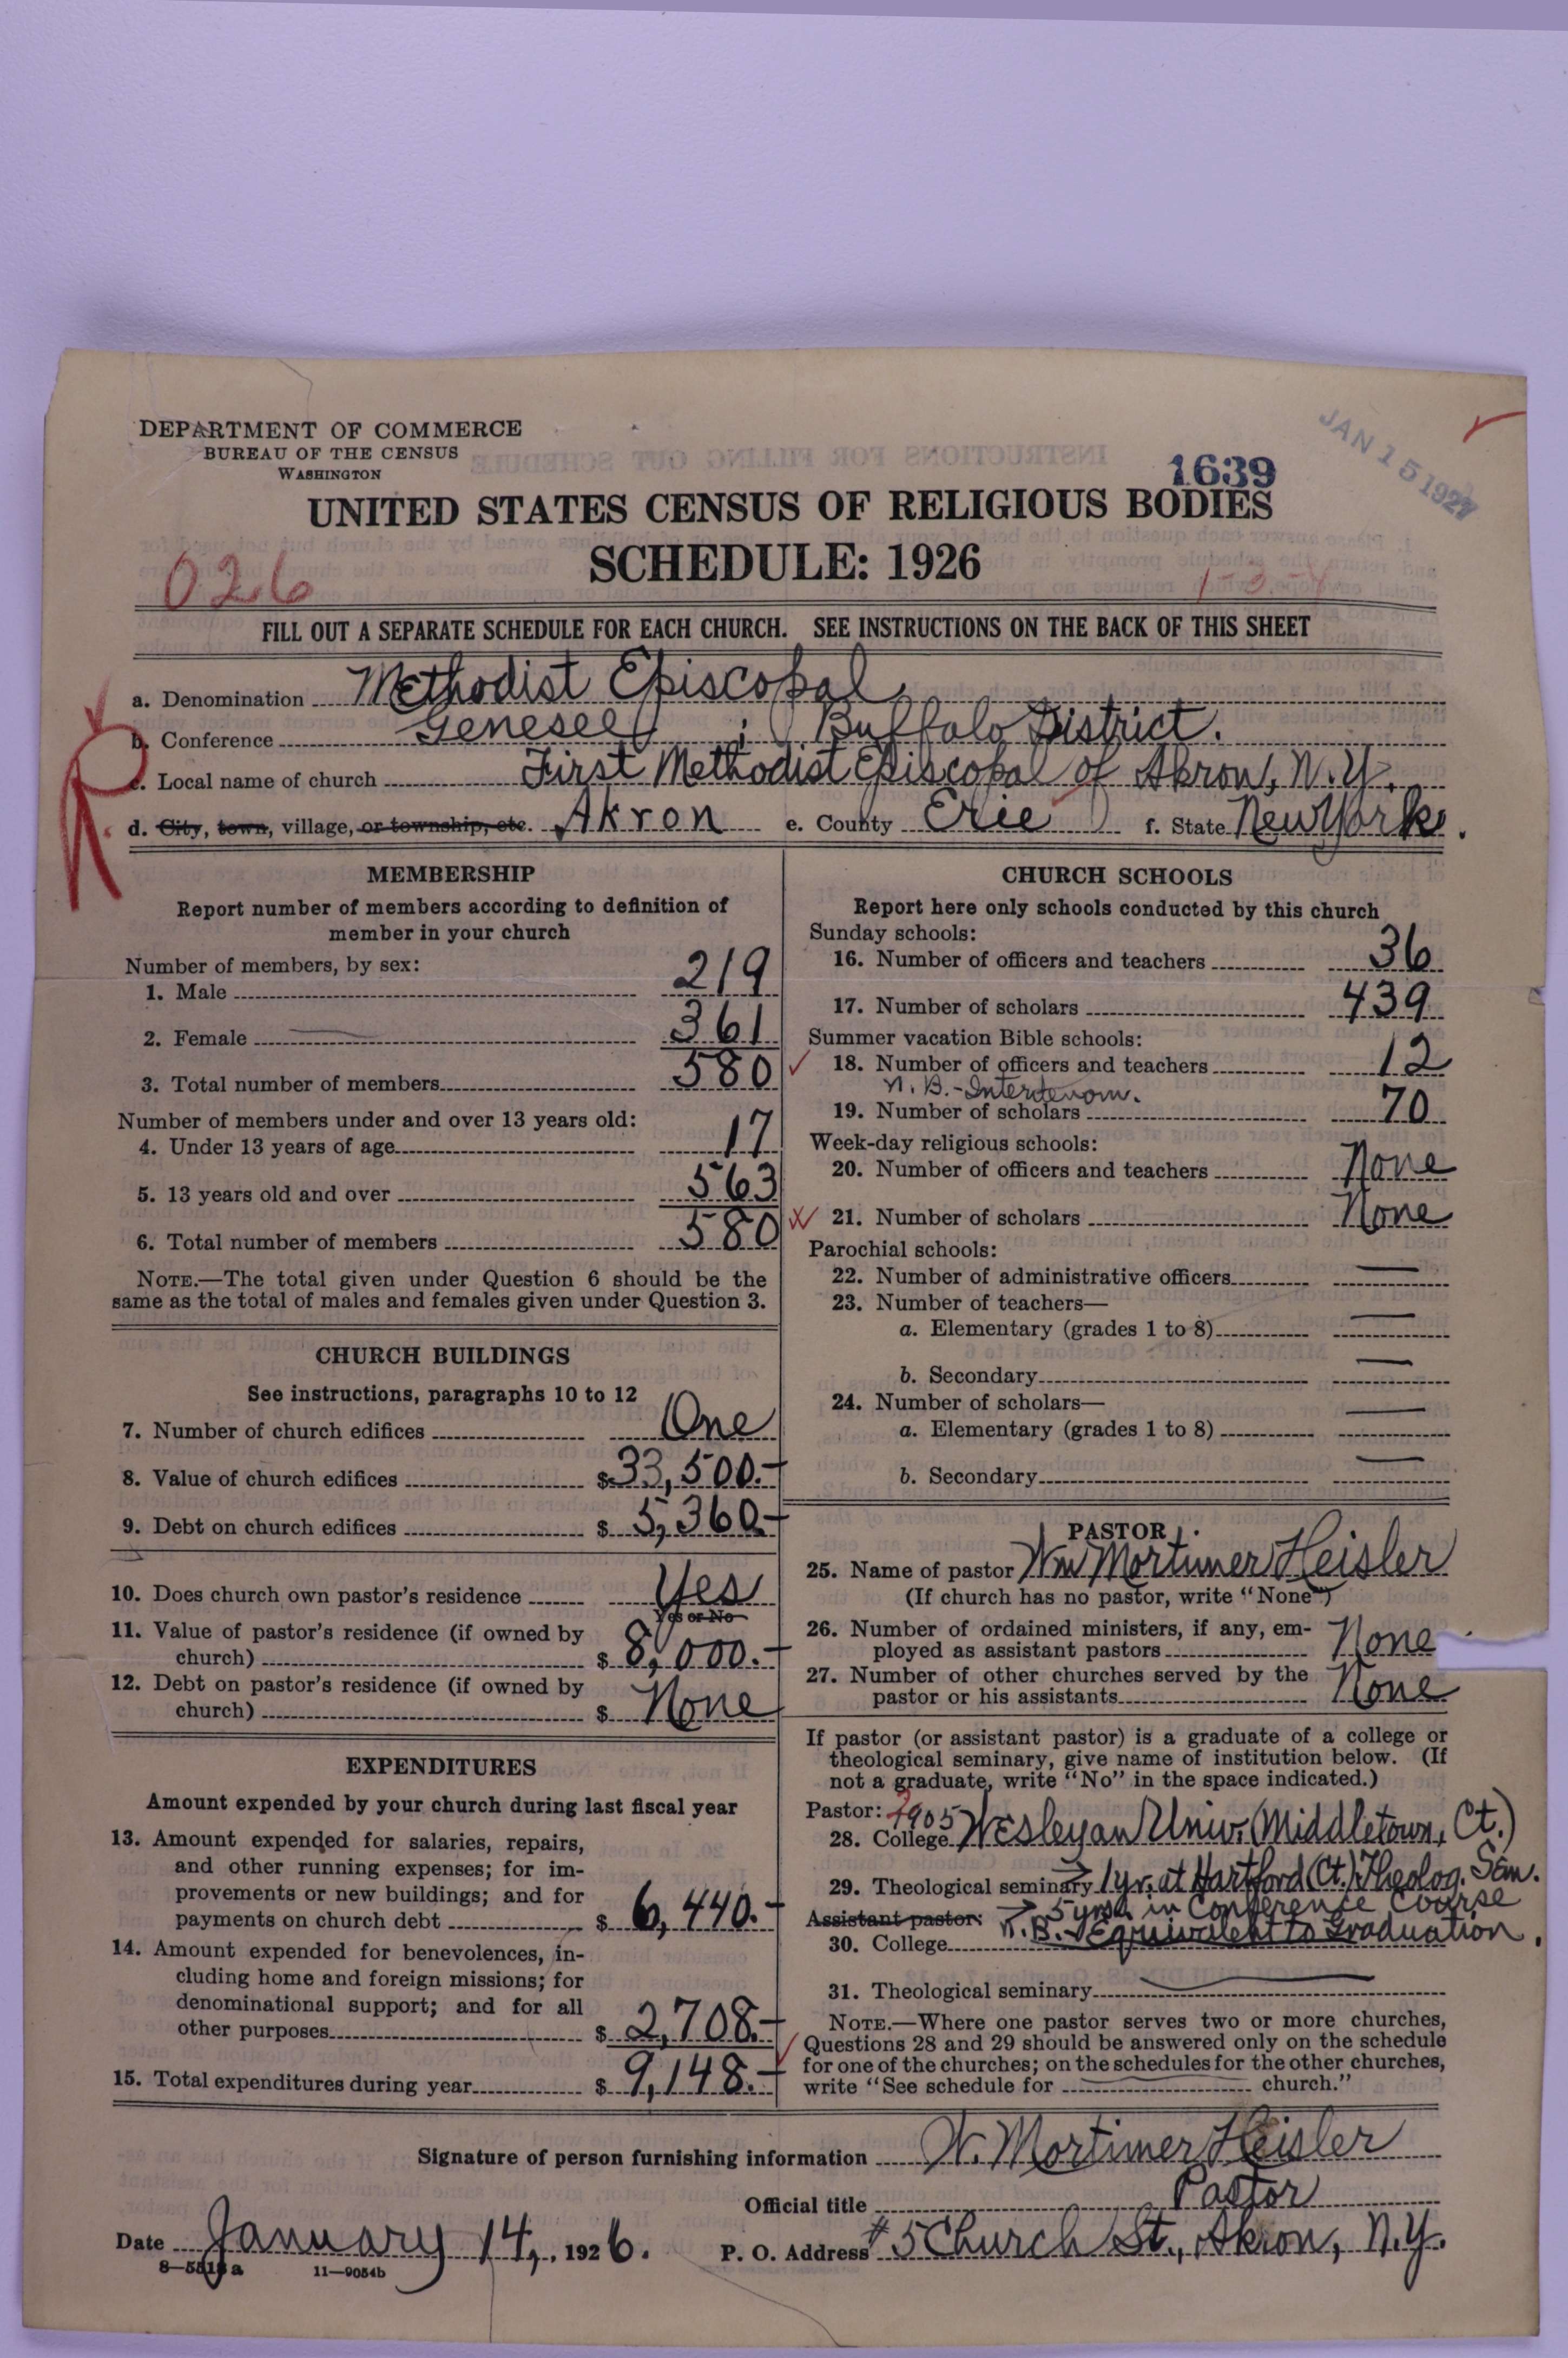 DEPARTMENT OF COMMERCE
BUREAU OF THE CENSUS
WASHINGTON
JAN 15 1927
1639
UNITED STATES CENSUS OF RELIGIOUS BODIES
SCHEDULE: 1926
026
FILL OUT A SEPARATE SCHEDULE FOR EACH CHURCH. SEE INSTRUCTIONS ON THE BACK OF THIS SHEET
a. Denomination Methodist Episcopal
b. Conference Genesee ; (Buffalo District.
c. Local name of church First Methodist Episcopal of Akron, N.Y.
d. City, town, village, or township, etc. Akron e. County Erie f. State New York.
MEMBERSHIP
Report number of members according to definition of
member in your church
Number of members, by sex:
1. Male 219
2. Female 361
3. Total number of members 580
Number of members under and over 13 years old:
4. Under 13 years of age 17
5. 13 years old and over 563
6. Total number of members 580
NOTE.—The total given under Question 6 should be the
same as the total of males and females given under Question 3.
CHURCH BUILDINGS
See instructions, paragraphs 10 to 12
7. Number of church edifices One
8. Value of church edifices $ 33,500.-
9. Debt on church edifices $ 5,360.-
10. Does church own pastor's residence Yes
Yes or No
11. Value of pastor's residence (if owned by
church) $ 8,000.-
12. Debt on pastor's residence (if owned by
church) $ None
EXPENDITURES
Amount expended by your church during last fiscal year
13. Amount expended for salaries, repairs,
and other running expenses; for im-
provements or new buildings; and for
payments on church debt $ 6,440.-
14. Amount expended for benevolences, in-
cluding home and foreign missions; for
denominational support; and for all
other purposes $ 2,708.-
15. Total expenditures during year $ 9,148.-
CHURCH SCHOOLS
Report here only schools conducted by this church
Sunday schools:
16. Number of officers and teachers 36
17. Number of scholars 439
Summer vacation Bible schools:
18. Number of officers and teachers 12
N.B.-Interdenom.
19. Number of scholars 70
Week-day religious schools:
20. Number of officers and teachers None
21. Number of scholars None
Parochial schools:
22. Number of administrative officers —
23. Number of teachers—
a. Elementary (grades 1 to 8) —
b. Secondary —
24. Number of scholars—
a. Elementary (grades 1 to 8) —
b. Secondary —
PASTOR
25. Name of pastor Wm Mortimer Heisler
(If church has no pastor, write "None")
26. Number of ordained ministers, if any, em-
ployed as assistant pastors None
27. Number of other churches served by the
pastor or his assistants None
If pastor (or assistant pastor) is a graduate of a college or
theological seminary, give name of institution below. (If
not a graduate, write "No" in the space indicated.)
Pastor: 1905
28. College Wesleyan Univ. (Middletown, Ct.)
29. Theological seminary 1 yr. at Hartford (Ct.) Theolog. Sem.
Assistant pastor: 5 yrs. in Conference Course
30. College N.B. - Equivalent to Graduation.
31. Theological seminary
NOTE.—Where one pastor serves two or more churches,
Questions 28 and 29 should be answered only on the schedule
for one of the churches; on the schedules for the other churches,
write "See schedule for church."
Signature of person furnishing information W. Mortimer Heisler
Official title Pastor
Date January 14, 1926. P. O. Address #5 Church St., Akron, N.Y.
8—5518a 11—9054b